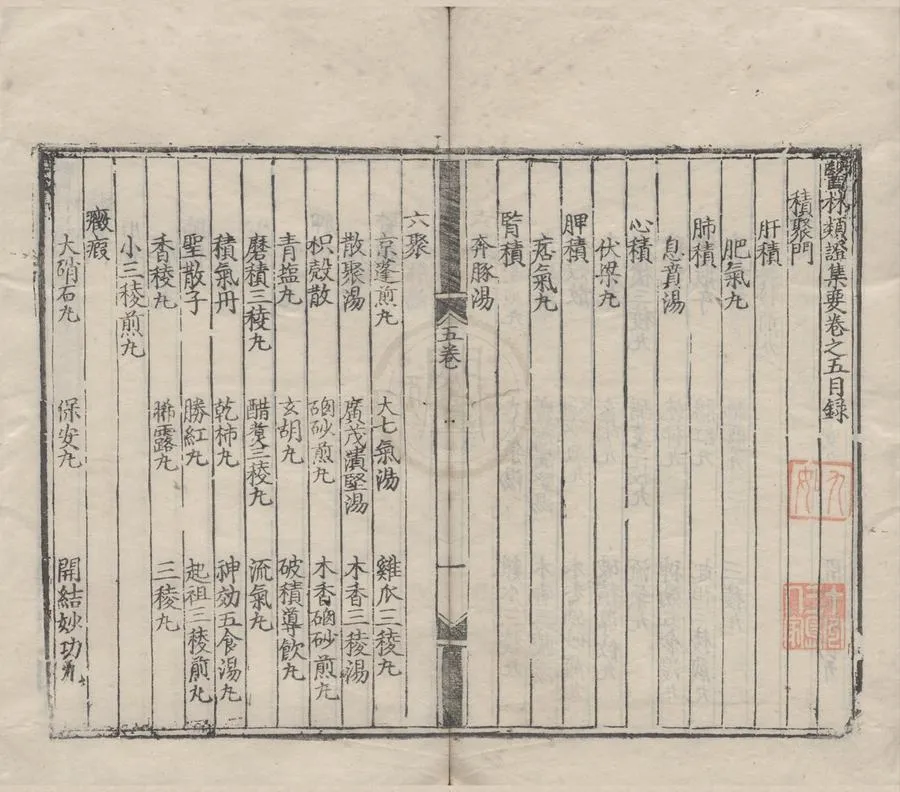 醫林類證集要卷之五目録
積聚門
肝積
肥氣丸
肺積
息賁湯
心積
伏梁丸
脾積
痞氣丸
腎積
奔豚湯
五卷
一
六聚
京蓬煎丸 大七氣湯 雞爪三稜丸
散聚湯 廣茂潰堅湯 木香三稜湯
枳殼散 硇砂煎丸 木香硇砂煎丸
青塩丸 玄胡丸 破積導飲丸
磨積三稜丸 醋煑三稜丸 流氣丸
積氣丹 乾柿丸 神効五食湯丸
聖散子 勝紅丸 起祖三稜煎丸
香稜丸 晞露丸 三稜丸
小三稜煎丸
癥瘕
大硝石丸 保安丸 開結妙功丸